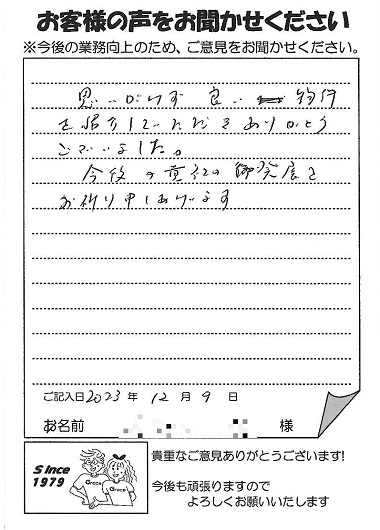 お客様の声をお聞かせください
※今後の業務向上のため、ご意見をお聞かせください。
思いがけず 良い 物件
を紹介していただきありがとう
ございました。
今後の貴社の御発展を
お祈り申しあげます
ご記入日2023年 12月 9日
お名前 様
Since
1979
Grace
Grace
貴重なご意見ありがとうございます!
今後も頑張りますので
よろしくお願いいたします